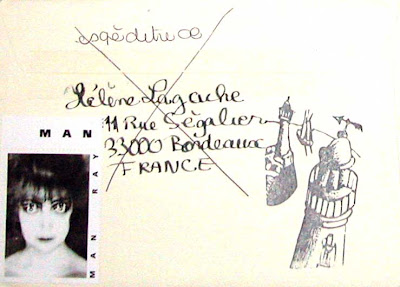 expéditrice
Hélène Lagache
11 Rue Ségalier
33000 Bordeaux
FRANCE
MAN
MAN RAY